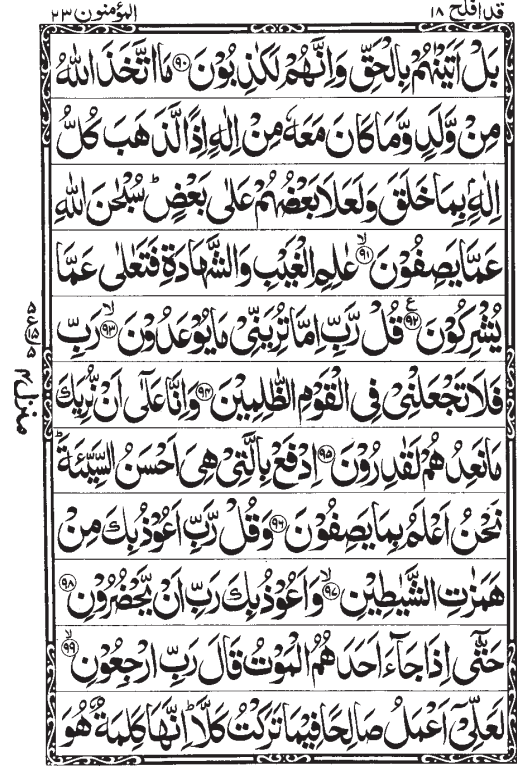 قد افلح ۱۸
المؤمنون ۲۳
بَلْ اَتَيْنٰهُمْ بِالْحَقِّ وَاِنَّهُمْ لَكٰذِبُوْنَ ۹۰ مَا اتَّخَذَ اللّٰهُ
مِنْ وَّلَدٍ وَّمَا كَانَ مَعَهٗ مِنْ اِلٰهٍ اِذًا لَّذَهَبَ كُلُّ
اِلٰهٍۭ بِمَا خَلَقَ وَلَعَلَا بَعْضُهُمْ عَلٰى بَعْضٍ ؕ سُبْحٰنَ اللّٰهِ
عَمَّا يَصِفُوْنَ ۙ ۹۱ عٰلِمِ الْغَيْبِ وَالشَّهَادَةِ فَتَعٰلٰى عَمَّا
يُشْرِكُوْنَ ۹۲ ع قُلْ رَّبِّ اِمَّا تُرِيَنِّىْ مَا يُوْعَدُوْنَ ۙ ۹۳ رَبِّ
فَلَا تَجْعَلْنِىْ فِى الْقَوْمِ الظّٰلِمِيْنَ ۹۴ وَاِنَّا عَلٰٓى اَنْ نُّرِيَكَ
مَا نَعِدُهُمْ لَقٰدِرُوْنَ ۹۵ اِدْفَعْ بِالَّتِىْ هِىَ اَحْسَنُ السَّيِّئَةَ ؕ
نَحْنُ اَعْلَمُ بِمَا يَصِفُوْنَ ۹۶ وَقُلْ رَّبِّ اَعُوْذُ بِكَ مِنْ
هَمَزٰتِ الشَّيٰطِيْنِ ۙ ۹۷ وَاَعُوْذُ بِكَ رَبِّ اَنْ يَّحْضُرُوْنِ ۹۸
حَتّٰٓى اِذَا جَآءَ اَحَدَهُمُ الْمَوْتُ قَالَ رَبِّ ارْجِعُوْنِ ۙ ۹۹
لَعَلِّىْٓ اَعْمَلُ صَالِحًا فِيْمَا تَرَكْتُ كَلَّا ؕ اِنَّهَا كَلِمَةٌ هُوَ
۵ ع ۱۵ ۵
منزل ۴